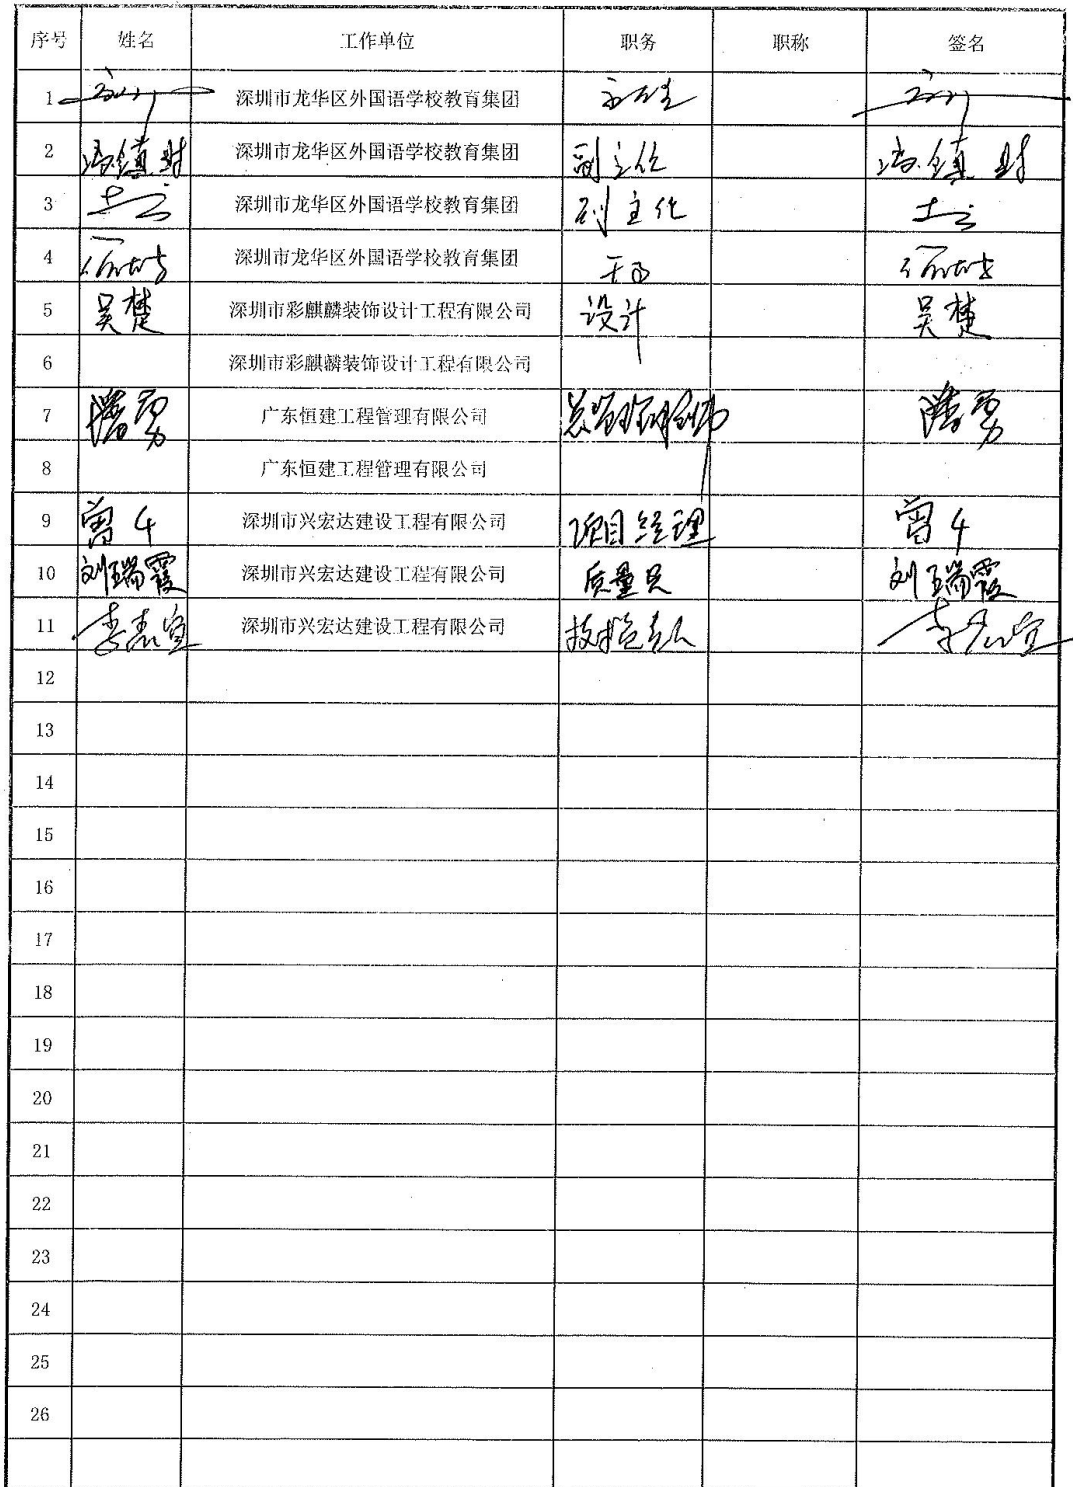 序号 姓名 工作单位 职务 职称 签名
1 深圳市龙华区外国语学校教育集团
2 深圳市龙华区外国语学校教育集团 副主任
3 深圳市龙华区外国语学校教育集团 副主任
4 深圳市龙华区外国语学校教育集团
5 吴楚 深圳市彩麒麟装饰设计工程有限公司 设计 吴楚
6 深圳市彩麒麟装饰设计工程有限公司
7 广东恒建工程管理有限公司
8 广东恒建工程管理有限公司
9 深圳市兴宏达建设工程有限公司 项目经理
10 刘瑞霞 深圳市兴宏达建设工程有限公司 质量员 刘瑞霞
11 深圳市兴宏达建设工程有限公司
12
13
14
15
16
17
18
19
20
21
22
23
24
25
26